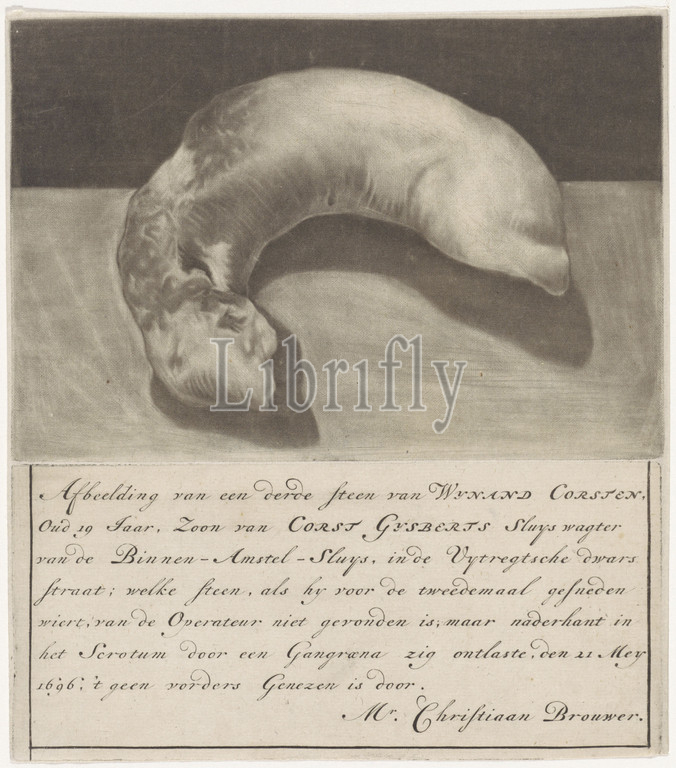 Librifly
Afbeelding van een derde steen van WYNAND CORSTEN,
Oud 19 Jaar, Zoon van CORST GYSBERTS Sluyswagter
van de Binnen-Amstel-Sluys, in de Uytregtsche dwars
straat; welke steen, als hy voor de tweedemaal gesneden
wiert, van de Operateur niet gevonden is; maar naderhant in
het Scrotum door een Gangræna zig ontlaste, den 21 Mey
1696; 't geen vorders Genezen is door.
Mr. Christiaan Brouwer.